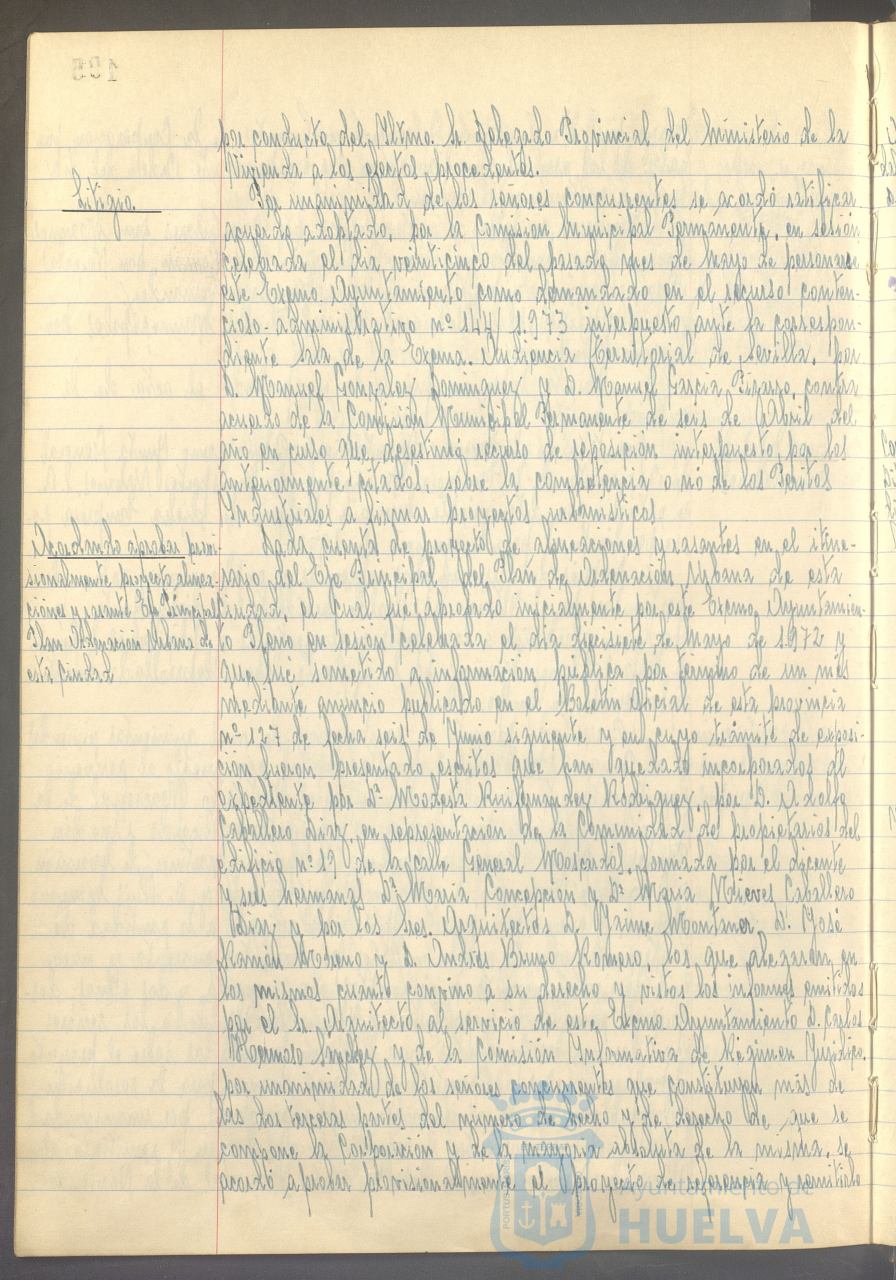 por conducto del Iltmo. Sr. Delegado Provincial del Ministerio de la
Vivienda a los efectos procedentes.
Litigio.
Por unanimidad de los señores concurrentes se acordó ratificar
acuerdo adoptado, por la Comisión Municipal Permanente, en sesión
celebrada el día veinticinco del pasado mes de Mayo de personarse
este Excmo. Ayuntamiento como demandado en el recurso conten-
cioso-administrativo nº 144/1.973 interpuesto ante la correspon-
diente Sala de la Excma. Audiencia Territorial de Sevilla, por
D. Manuel González Domínguez y D. Manuel García Pizarro, contra
acuerdo de la Comisión Municipal Permanente de seis de Abril del
año en curso que desestimó recurso de reposición interpuesto, por los
anteriormente citados, sobre la competencia o nó de los Peritos
Industriales a firmar proyectos urbanísticos
Acordando aprobar provi-
sionalmente proyecto alinea-
ciones y rasante Eje Principal
Plan Ordenación Urbana de
esta Ciudad
Dada cuenta de proyecto de alineaciones y rasantes en el itine-
rario del Eje Principal del Plan de Ordenación Urbana de esta
Ciudad, el cual fué aprobado inicialmente por este Excmo. Ayuntamien-
to Pleno en sesión celebrada el día diecisiete de Mayo de 1.972 y
que fué sometido a información pública por término de un mes
mediante anuncio publicado en el Boletín Oficial de esta provincia
nº 127 de fecha seis de Junio siguiente y en cuyo trámite de exposi-
ción fueron presentado escritos que han quedado incorporados al
expediente por Dª Modesta Ruifernández Rodríguez, por D. Adolfo
Caballero Díaz, en representación de la Comunidad de propietarios del
edificio nº 19 de la calle General Moscardó, formada por el dicente
y sus hermanas Dª María Concepción y Dª María Nieves Caballero
Díaz y por los Sres. Arquitectos D. Jaime Montaner, D. José
Ramón Moreno y D. Andrés Bruzo Romero, los que alegaron en
los mismos cuanto convino a su derecho y vistos los informes emitidos
por el Sr. Arquitecto al servicio de este Excmo. Ayuntamiento D. Carlos
Hermoso Sánchez y de la Comisión Informativa de Régimen Jurídico,
por unanimidad de los señores concurrentes que constituyen más de
las dos terceras partes del número de hecho y de derecho de que se
compone la Corporación y de la mayoría absoluta de la misma, se
acordó aprobar provisionalmente el proyecto de referencia y remitirlo
Ayuntamiento de
HUELVA